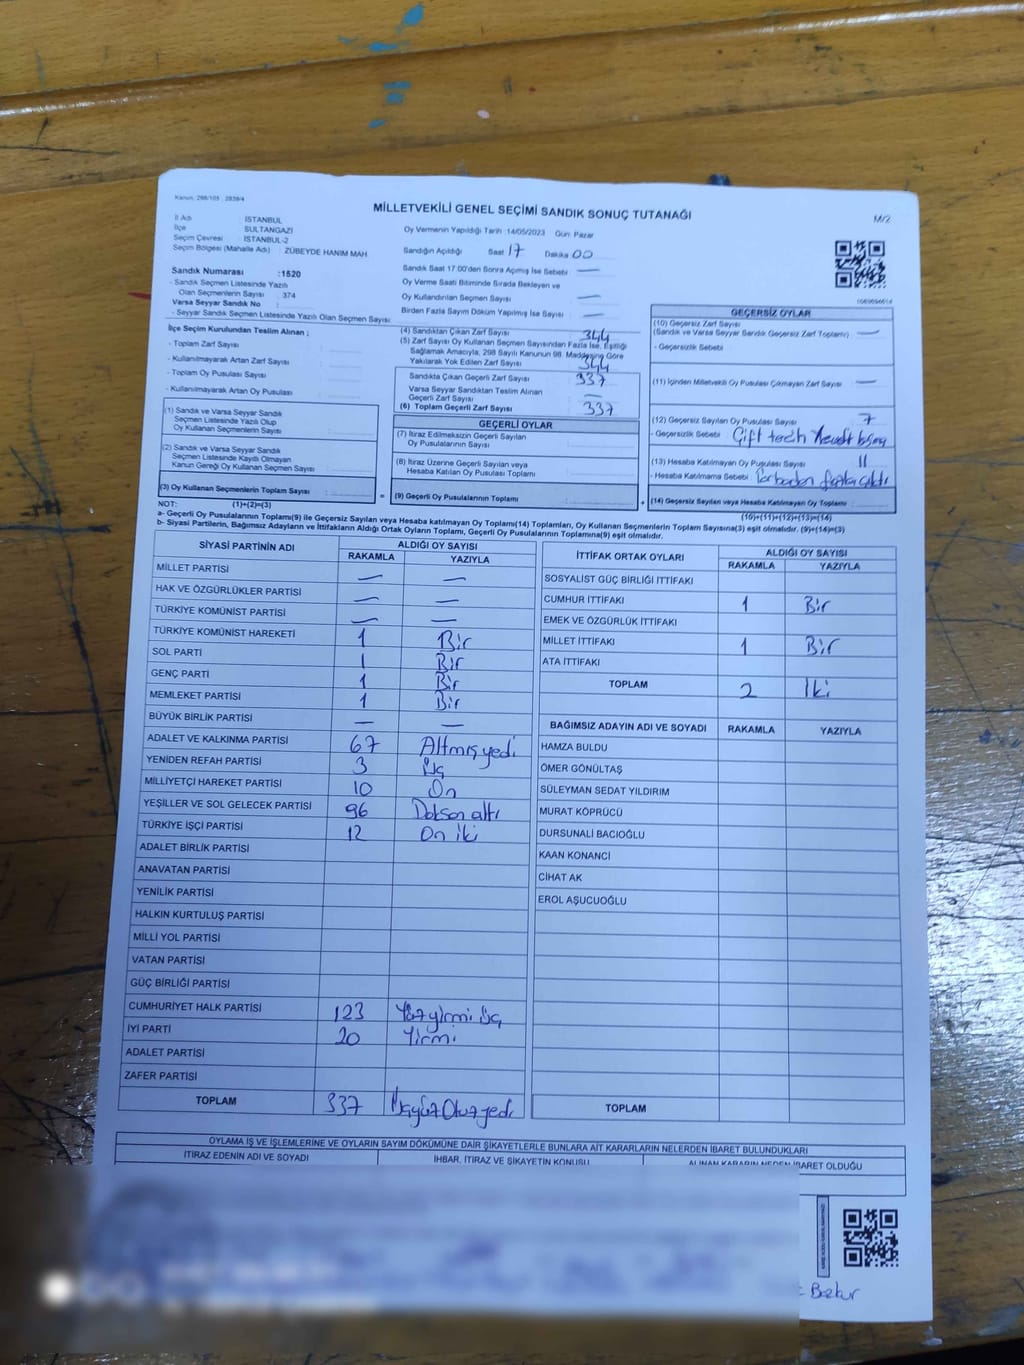 Kanun: 298/105 - 2839/4
MİLLETVEKİLİ GENEL SEÇİMİ SANDIK SONUÇ TUTANAĞI
M/2
İl Adı : İSTANBUL
İlçe : SULTANGAZİ
Seçim Çevresi : İSTANBUL-2
Seçim Bölgesi (Mahalle Adı) : ZÜBEYDE HANIM MAH
Oy Vermenin Yapıldığı Tarih :14/05/2023 Gün: Pazar
Sandığın Açıldığı Saat 17 Dakika 00
Sandık Saat 17:00'den Sonra Açılmış İse Sebebi : —
Oy Verme Saati Bitiminde Sırada Bekleyen ve
Oy Kullandırılan Seçmen Sayısı : —
Birden Fazla Sayım Döküm Yapılmış İse Sayısı : —
Sandık Numarası :1520
- Sandık Seçmen Listesinde Yazılı
Olan Seçmenlerin Sayısı : 374
Varsa Seyyar Sandık No :
- Seyyar Sandık Seçmen Listesinde Yazılı Olan Seçmen Sayısı :
İlçe Seçim Kurulundan Teslim Alınan ;
- Toplam Zarf Sayısı :
- Kullanılmayarak Artan Zarf Sayısı :
- Toplam Oy Pusulası Sayısı :
- Kullanılmayarak Artan Oy Pusulası :
(1) Sandık ve Varsa Seyyar Sandık
Seçmen Listesinde Yazılı Olup
Oy Kullanan Seçmenlerin Sayısı :
(2) Sandık ve Varsa Seyyar Sandık
Seçmen Listesinde Kayıtlı Olmayan
Kanun Gereği Oy Kullanan Seçmen Sayısı :
(3) Oy Kullanan Seçmenlerin Toplam Sayısı :
(1)+(2)=(3)
(4) Sandıktan Çıkan Zarf Sayısı : 344
(5) Zarf Sayısı Oy Kullanan Seçmen Sayısından Fazla İse, Eşitliği
Sağlamak Amacıyla, 298 Sayılı Kanunun 98. Maddesine Göre
Yakılarak Yok Edilen Zarf Sayısı : 344
Sandıkta Çıkan Geçerli Zarf Sayısı : 337
Varsa Seyyar Sandıktan Teslim Alınan
Geçerli Zarf Sayısı : —
(6) Toplam Geçerli Zarf Sayısı : 337
GEÇERLİ OYLAR
(7) İtiraz Edilmeksizin Geçerli Sayılan
Oy Pusulalarının Sayısı :
(8) İtiraz Üzerine Geçerli Sayılan veya
Hesaba Katılan Oy Pusulası Toplamı :
= (9) Geçerli Oy Pusulalarının Toplamı :
GEÇERSİZ OYLAR
(10) Geçersiz Zarf Sayısı
(Sandık ve Varsa Seyyar Sandık Geçersiz Zarf Toplamı) : —
- Geçersizlik Sebebi :
(11) İçinden Milletvekili Oy Pusulası Çıkmayan Zarf Sayısı : —
(12) Geçersiz Sayılan Oy Pusulası Sayısı : 7
- Geçersizlik Sebebi : Çift tercih
(13) Hesaba Katılmayan Oy Pusulası Sayısı : 11
- Hesaba Katılmama Sebebi : fazla çıktı
+ (14) Geçersiz Sayılan veya Hesaba Katılmayan Oy Toplamı :
(10)+(11)+(12)+(13)=(14)
NOT:
a- Geçerli Oy Pusulalarının Toplamı(9) ile Geçersiz Sayılan veya Hesaba katılmayan Oy Toplamı(14) Toplamları, Oy Kullanan Seçmenlerin Toplam Sayısına(3) eşit olmalıdır. (9)+(14)=(3)
b- Siyasi Partilerin, Bağımsız Adayların ve İttifakların Aldığı Ortak Oyların Toplamı, Geçerli Oy Pusulalarının Toplamına(9) eşit olmalıdır.
SİYASİ PARTİNİN ADI ALDIĞI OY SAYISI
RAKAMLA YAZIYLA
MİLLET PARTİSİ — —
HAK VE ÖZGÜRLÜKLER PARTİSİ — —
TÜRKİYE KOMÜNİST PARTİSİ — —
TÜRKİYE KOMÜNİST HAREKETİ 1 Bir
SOL PARTİ 1 Bir
GENÇ PARTİ 1 Bir
MEMLEKET PARTİSİ 1 Bir
BÜYÜK BİRLİK PARTİSİ — —
ADALET VE KALKINMA PARTİSİ 67 Altmış yedi
YENİDEN REFAH PARTİSİ 3 Üç
MİLLİYETÇİ HAREKET PARTİSİ 10 On
YEŞİLLER VE SOL GELECEK PARTİSİ 96 Doksan altı
TÜRKİYE İŞÇİ PARTİSİ 12 On iki
ADALET BİRLİK PARTİSİ
ANAVATAN PARTİSİ
YENİLİK PARTİSİ
HALKIN KURTULUŞ PARTİSİ
MİLLİ YOL PARTİSİ
VATAN PARTİSİ
GÜÇ BİRLİĞİ PARTİSİ
CUMHURİYET HALK PARTİSİ 123 Yüz yirmi üç
İYİ PARTİ 20 Yirmi
ADALET PARTİSİ
ZAFER PARTİSİ
TOPLAM 337 Üçyüz Otuz yedi
İTTİFAK ORTAK OYLARI ALDIĞI OY SAYISI
RAKAMLA YAZIYLA
SOSYALİST GÜÇ BİRLİĞİ İTTİFAKI
CUMHUR İTTİFAKI 1 Bir
EMEK VE ÖZGÜRLÜK İTTİFAKI
MİLLET İTTİFAKI 1 Bir
ATA İTTİFAKI
TOPLAM 2 İki
BAĞIMSIZ ADAYIN ADI VE SOYADI RAKAMLA YAZIYLA
HAMZA BULDU
ÖMER GÖNÜLTAŞ
SÜLEYMAN SEDAT YILDIRIM
MURAT KÖPRÜCÜ
DURSUNALİ BACIOĞLU
KAAN KONANCİ
CİHAT AK
EROL AŞUCUOĞLU
TOPLAM
OYLAMA İŞ VE İŞLEMLERİNE VE OYLARIN SAYIM DÖKÜMÜNE DAİR ŞİKAYETLERLE BUNLARA AİT KARARLARIN NELERDEN İBARET BULUNDUKLARI
İTİRAZ EDENİN ADI VE SOYADI İHBAR, İTİRAZ VE ŞİKAYETİN KONUSU ALINAN KARARIN NEDEN İBARET OLDUĞU